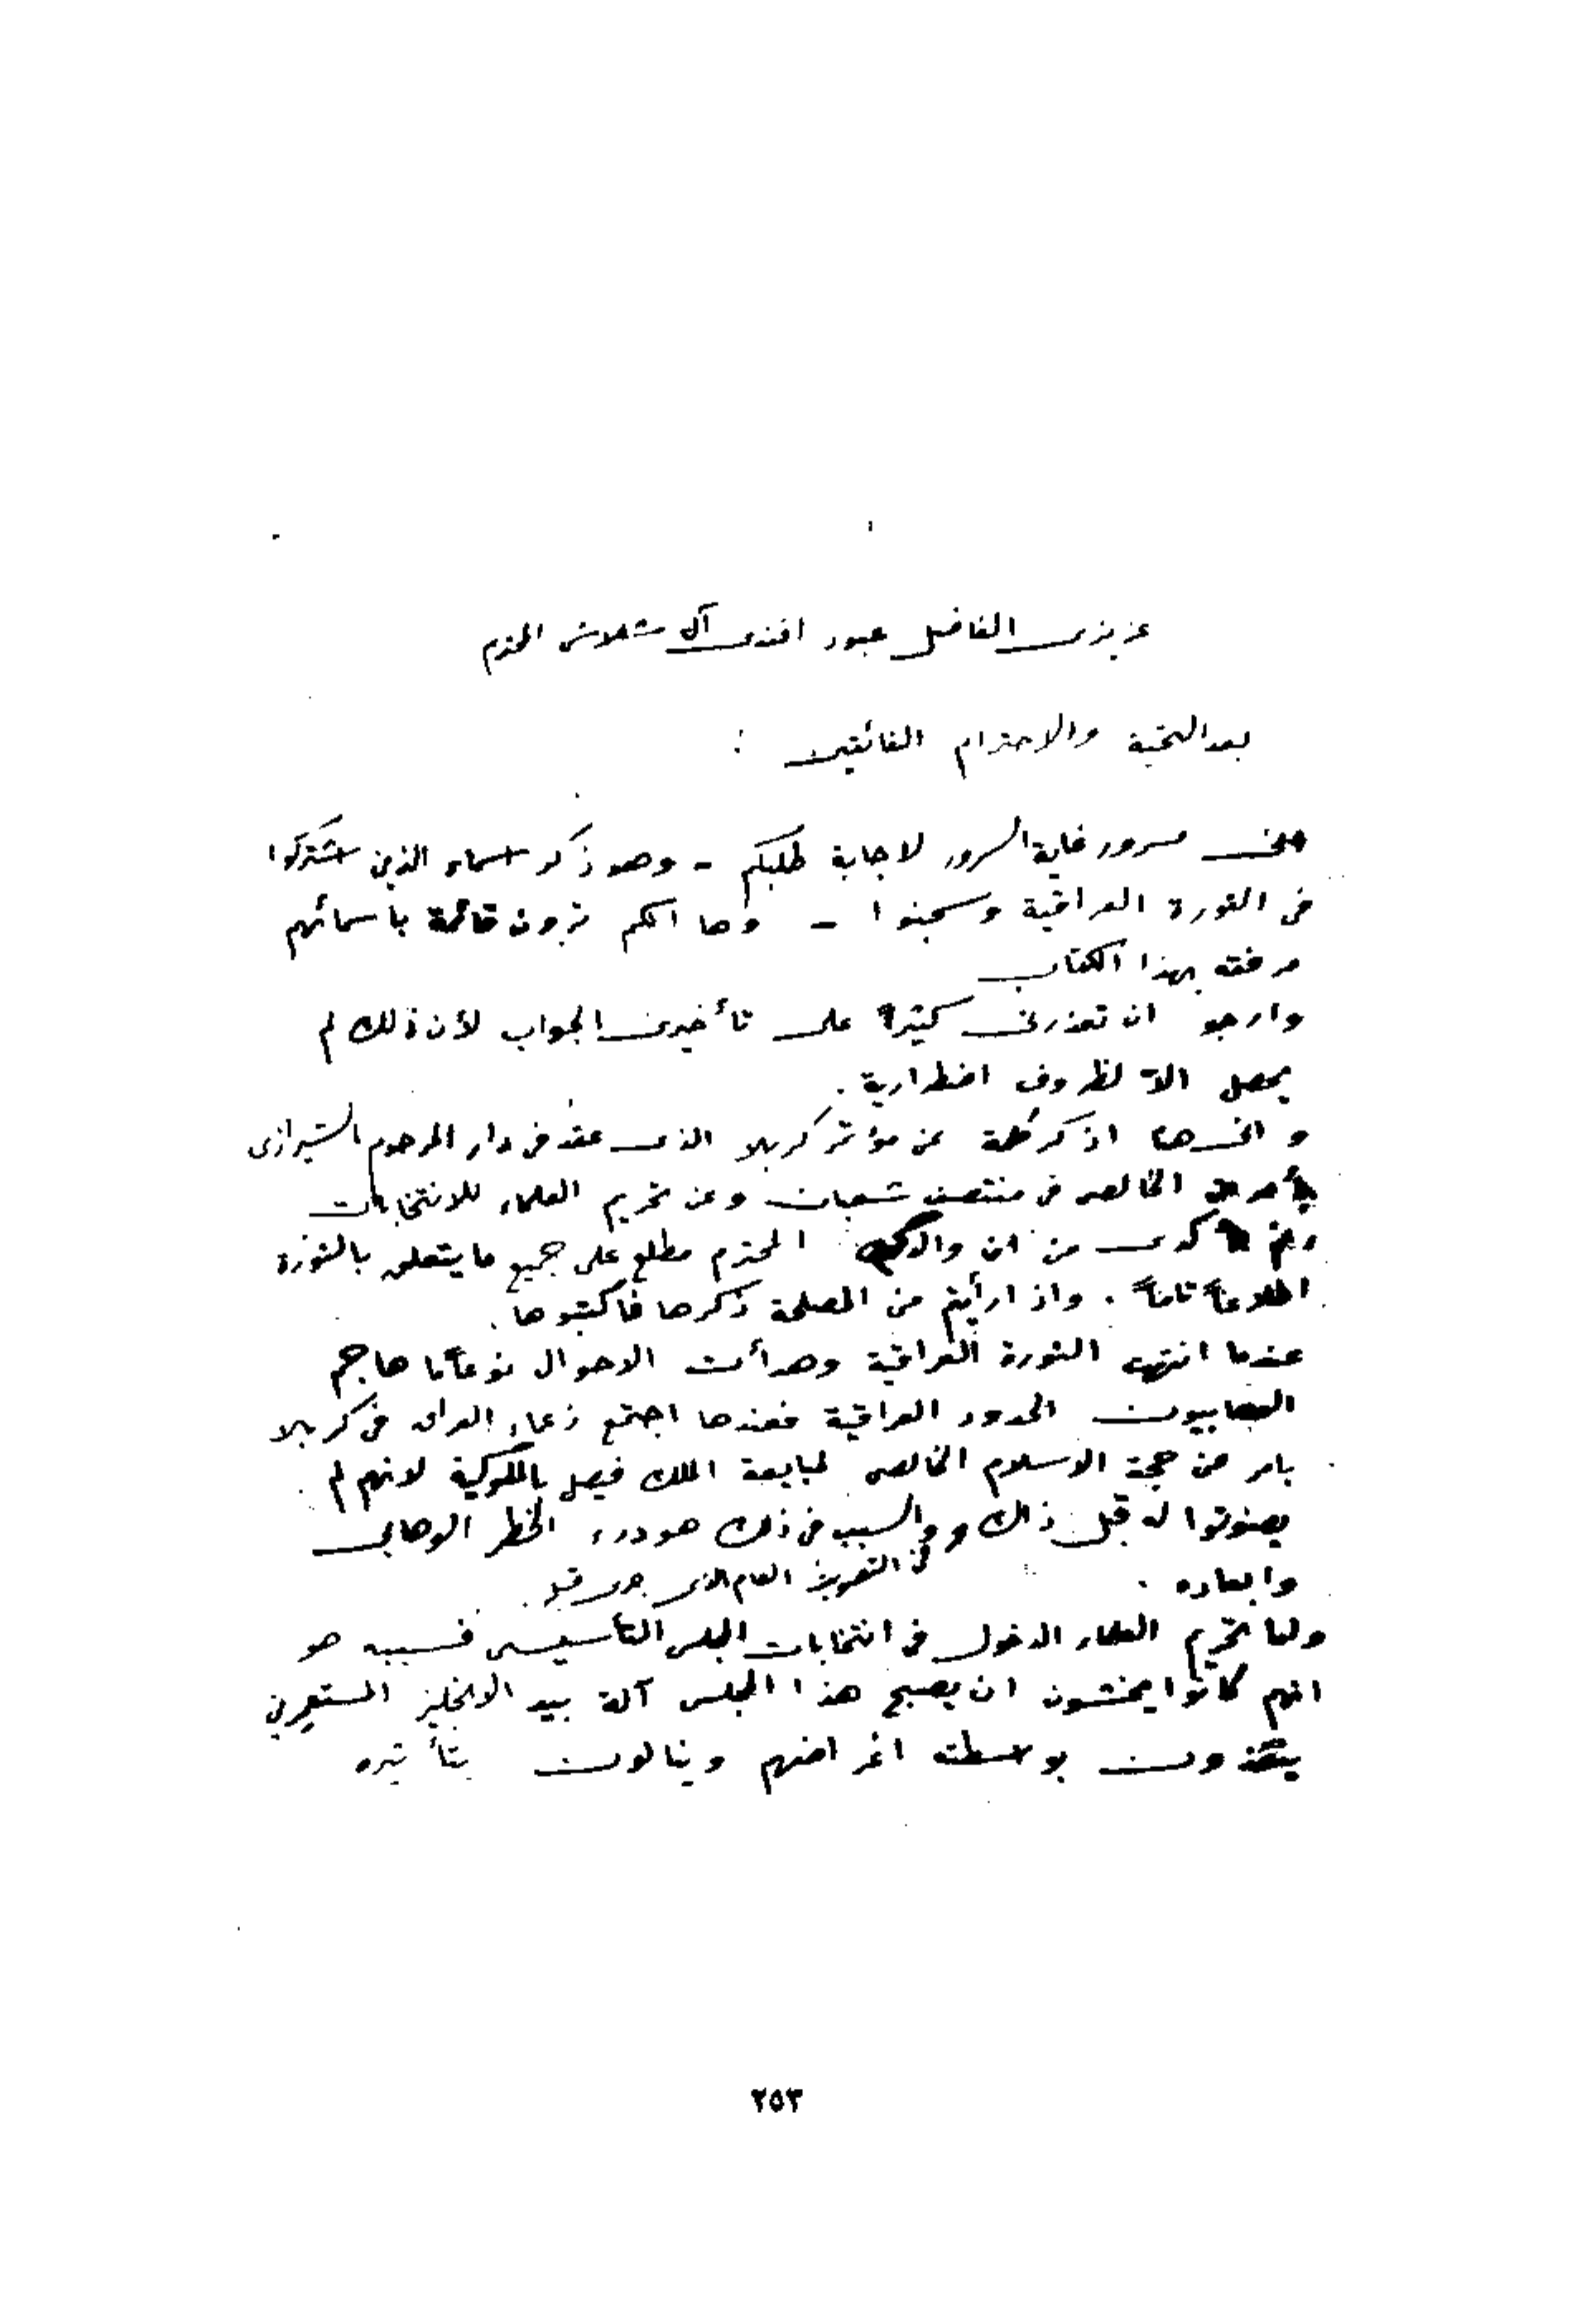 عزيزي الفاضل عبود افندي آل شلاش المحترم
بعد التحية والاحترام الفائقين :
مسرور غاية السرور لاجابة طلبكم - وهو ذكر اسماء الذين اشتركوا
في الثورة العراقية وسجنوا - وها انكم ترون قائمة باسمائهم
مرفقه بهذا الكتاب
وارجو ان تعذرني كثيراً على تأخيري الجواب لأن ذلك لم
يحصل الاّ لظروف اضطرارية .
واني ها اذكر كلمة عن مؤتمر كربلا الذي عقد في دار المرحوم الشيرازي
بأمر من الخالصي في منتصف شعبان وعن تحريم العلماء للانتخابات
رغم تأكدي من ان والدكم المحترم مطلع على جميع ما يتعلق بالثورة
اطلاعاً تاماً . واذا رأيتم من المصلحة ذكرها فاكتبوها .
عندما انتهت الثورة العراقية وهدأت الاحوال نوعاً ما هاجم
الوهابيون الحدود العراقية فعندها اجتمع زعماء العراق في كربلا
بامر من حجة الاسلام الخالصي لمبايعة الملك فيصل بالملوكية لانهم لم
يصوتوا له قبل ذاك والسبب في ذلك هو درء الخطر الوهابي
في التصويت العام الذي جرى قبلاً .
وابعاده .
واما تحريم العلماء الدخول في انتخابات المجلس التأسيسي فسببه هو
انهم كانوا يخشون ان يصبح هذا المجلس آلة بيد الانجليز المستعمرين
ينفذون بواسطته اغراضهم وينالون بتأثيره
٢٥٣